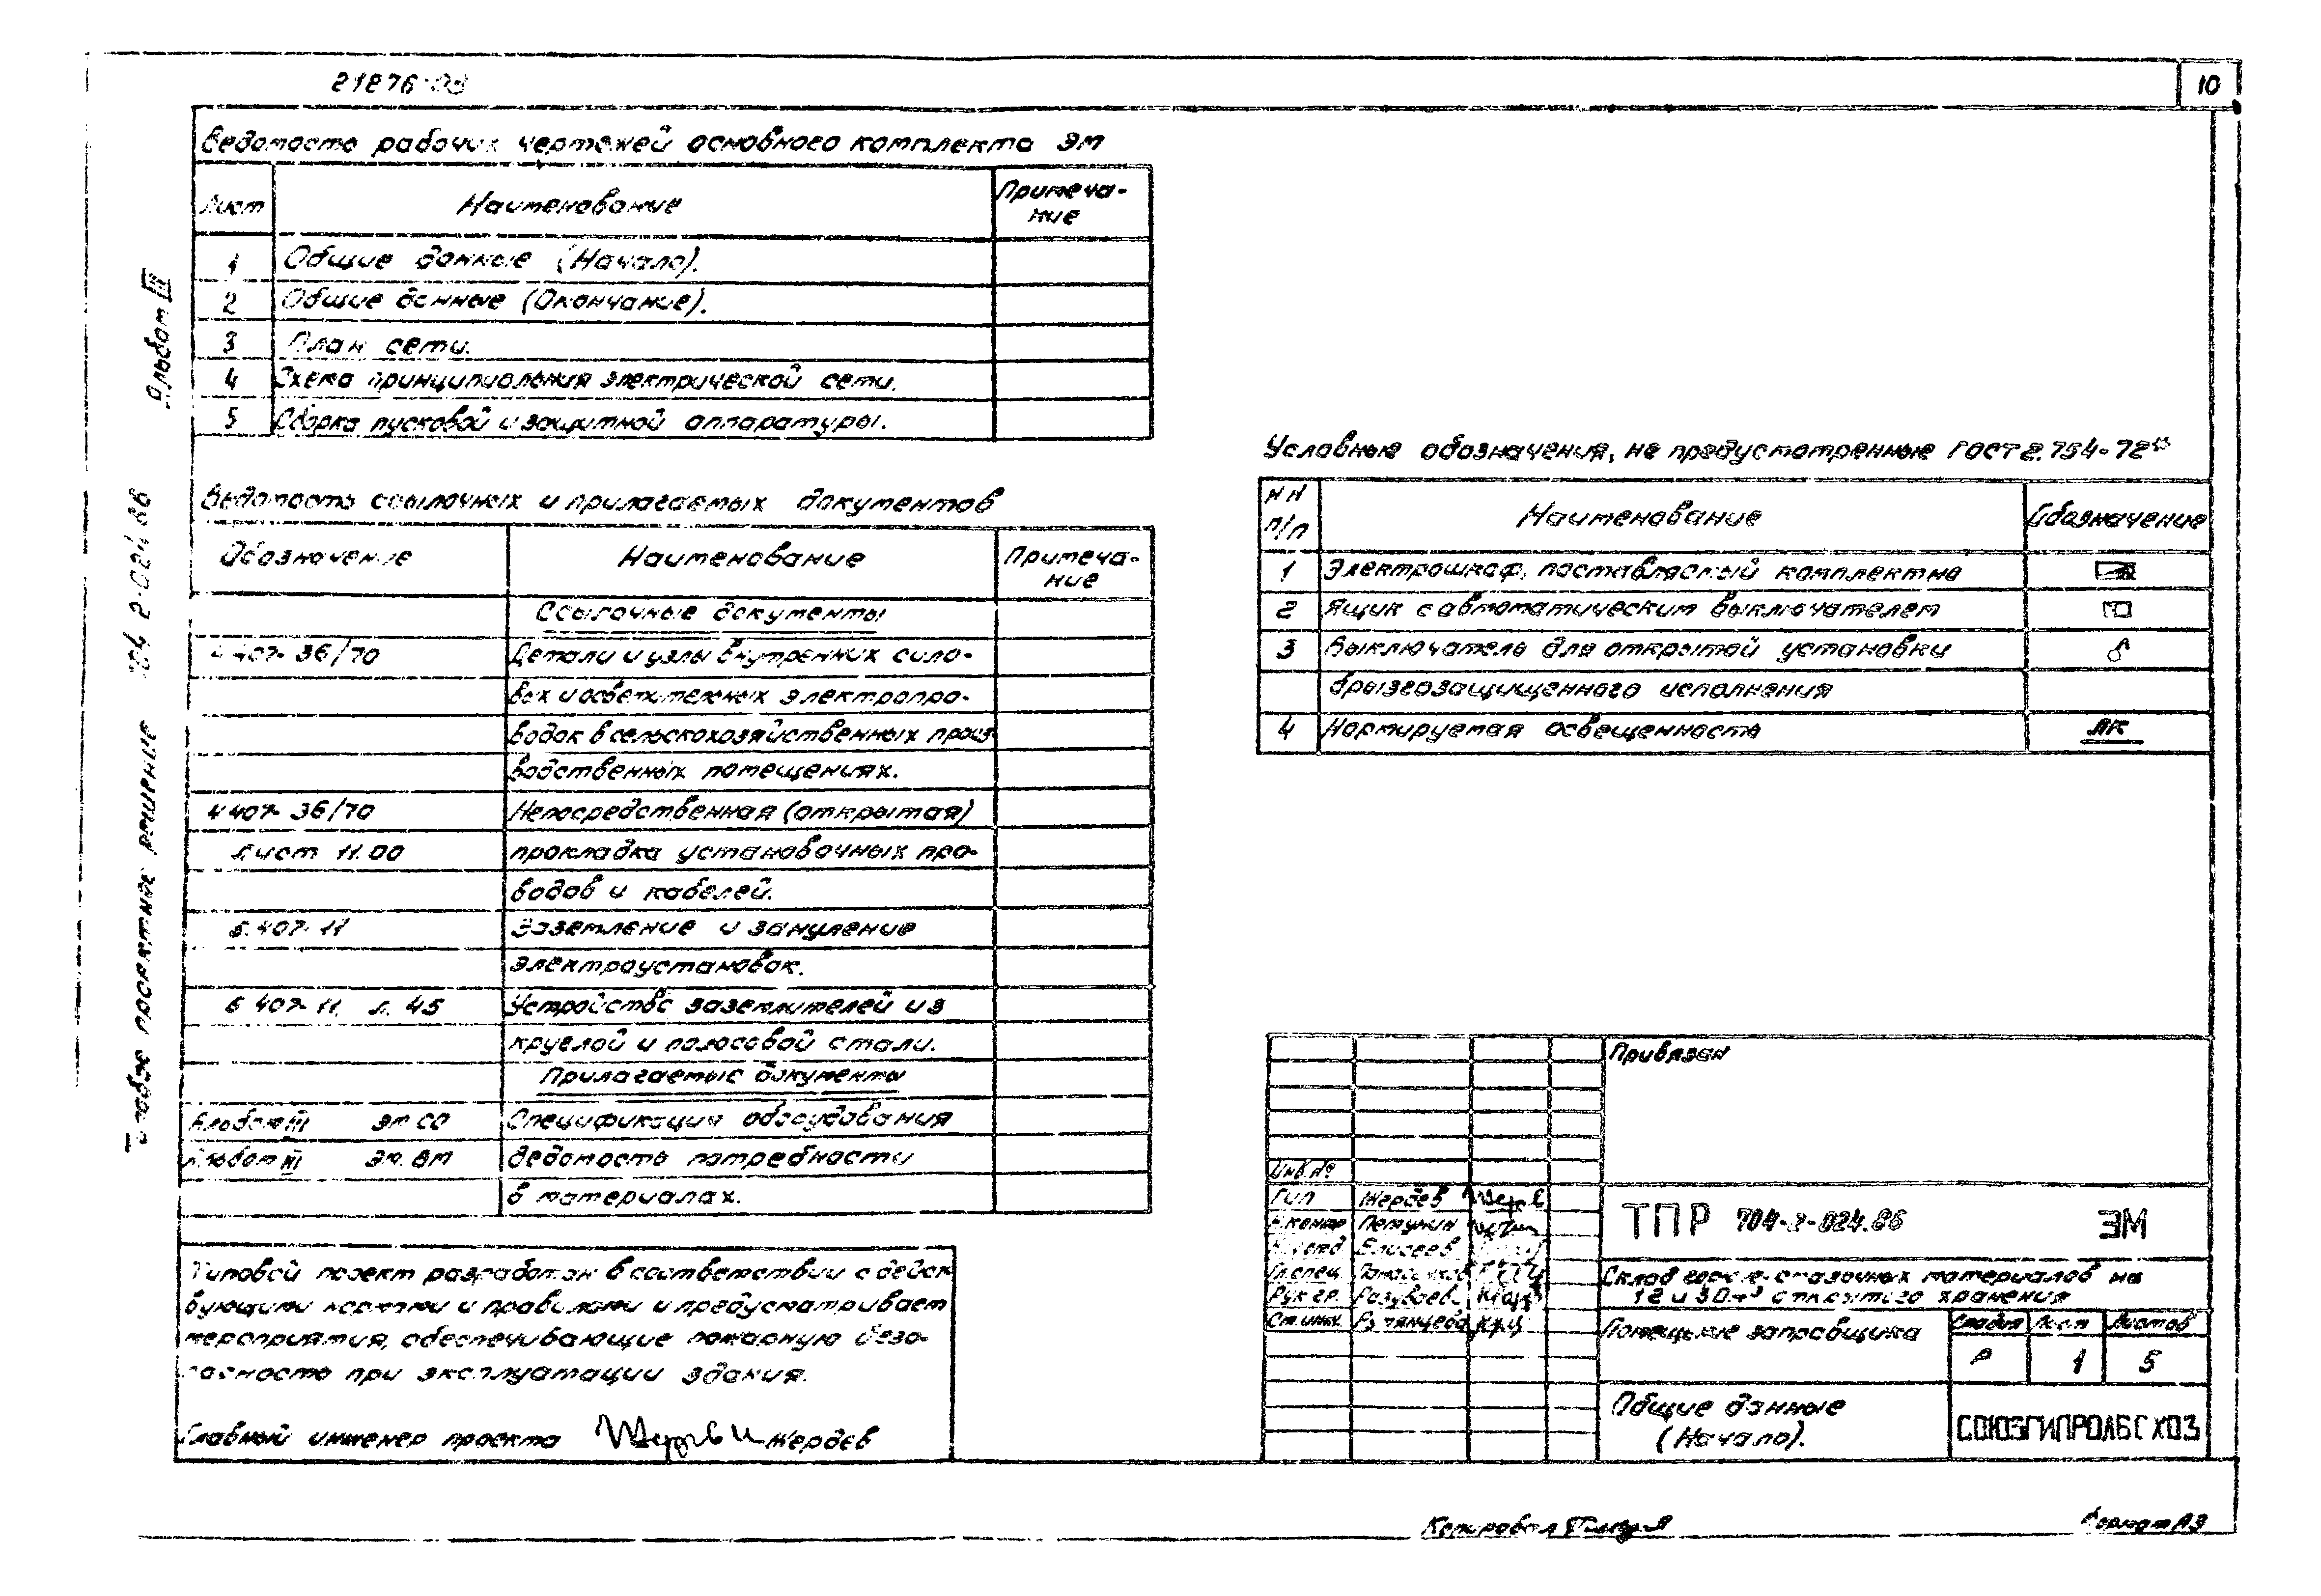 21876-03
10
Ведомость рабочих чертежей основного комплекта ЭМ
Лист Наименование Примеча-
ние
1 Общие данные (Начало).
2 Общие данные (Окончание).
3 План сети.
4 Схема принципиальная электрической сети.
5 Сборка пусковой и защитной аппаратуры.
Ведомость ссылочных и прилагаемых документов
Обозначение Наименование Примеча-
ние
Ссылочные документы
4.407-36/70 Детали и узлы внутренних сило-
вых и осветительных электропро-
водок в сельскохозяйственных произ
водственных помещениях.
4.407-36/70 Непосредственная (открытая)
Лист 11.00 прокладка установочных про-
водов и кабелей.
5.407-11 Заземление и зануление
электроустановок.
5.407-11. л. 45 Устройство заземлителей из
круглой и полосовой стали.
Прилагаемые документы
Альбом III ЭМ.СО Спецификация оборудования
Альбом III ЭМ.ВМ Ведомость потребности
в материалах.
Типовой проект разработан в соответствии с дейст
вующими нормами и правилами и предусматривает
мероприятия, обеспечивающие пожарную безо-
пасность при эксплуатации здания.
Главный инженер проекта Жердев
Альбом III
704-2-024.86
Типовое проектное решение
Условные обозначения, не предусмотренные ГОСТ 2.754-72*
НН
п/п Наименование Обозначение
1 Электрошкаф, поставляемый комплектно
2 Ящик с автоматическим выключателем
3 Выключатель для открытой установки
брызгозащищенного исполнения
4 Нормируемая освещенность ЛК
Привязан
Инв.№
ГИП Жердев
Н.контр Петунин
Нач.отд Елисеев
Гл.спец.
Рук.гр. Разуваев
Ст.инж. Румянцева
ТПР 704-2-024.86 ЭМ
Склад горюче-смазочных материалов на
12 и 30 м³ открытого хранения
Помещение заправщика
Стадия Лист Листов
Р 1 5
Общие данные
(Начало).
СОЮЗГИПРОЛЕСХОЗ
Копировал
Формат А3